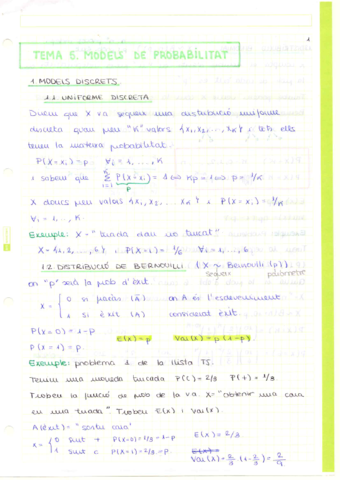 1
TEMA 5. MODELS DE PROBABILITAT
1 MODELS DISCRETS
1.1 UNIFORME DISCRETA
Diem que X va seguir una distribució uniforme
discreta quan pren "K" valors {x₁, x₂, ..., x_K} i tots ells
tenen la mateixa probabilitat.
P(X=xᵢ) = p ∀i = 1, ..., K
i sabem que Σ P(X=xᵢ) = 1 ⇔ Kp = 1 ⇔ p = 1/K
K
i=1
p
X doncs pren valors {x₁, x₂, ... x_K} i P(X=xᵢ) = 1/K
∀i = 1, ..., K.
Exemple: X = "tirada dau no trucat"
X = {1, 2, ..., 6} i P(X=i) = 1/6 ∀i = 1, ..., 6.
1.2 DISTRIBUCIÓ DE BERNOUILLI: (X ~ Bernouilli (p))
segueix paràmetre
on "p" serà la prob d'èxit
X = { 0 si fracàs (Ā) on A és l'esdeveniment
1 si èxit (A) contrarial èxit
P(X=0) = 1-p
E(X)=p Var(X)=p(1-p)
P(X=1) = p
Exemple: problema 1 de la llista T5.
Tenim una moneda trucada P(C)=2/3 P(+)=1/3
Trobeu la funció de prob de la va X="obtenir una cara
en una tirada". Trobeu E(X) i Var(X).
A(èxit) = "sortir cara"
X = { 0 surt + → P(X=0)=1/3=1-p E(X)=2/3
1 surt C → P(X=1)=2/3=p
Var(X)=2/3(1-2/3)=2/9